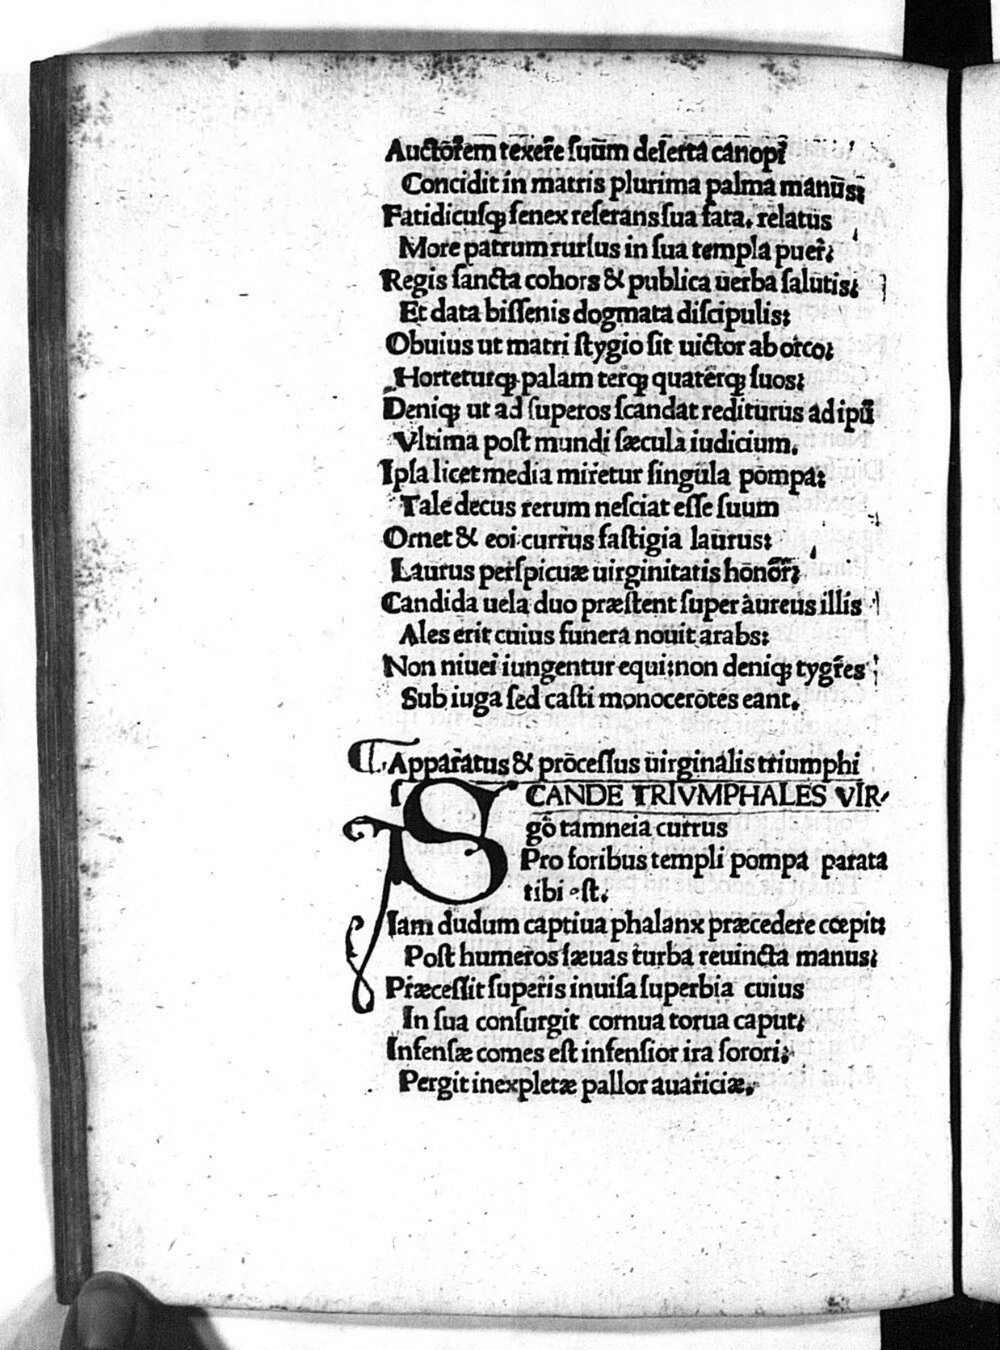 Auctorem texere ſuum deſerta canopi
Concidit in matris plurima palma manus:
Fatidicuſq; ſenex reſerans ſua fata, relatus
More patrum rurſus in ſua templa puer:
Regis ſancta cohors & publica uerba ſalutis:
Et data biſſenis dogmata diſcipulis:
Obuius ut matri ſtygio ſit uictor ab orco:
Horteturq; palam terq; quaterq; ſuos:
Deniq; ut ad ſuperos ſcandat rediturus ad ipū
Vltima poſt mundi ſæcula iudicium.
Ipſa licet media miretur ſingula pompa:
Tale decus rerum neſciat eſſe ſuum
Ornet & eoi currus faſtigia laurus:
Laurus perſpicuæ uirginitatis honor:
Candida uela duo præſtent ſuper aureus illis
Ales erit cuius funera nouit arabs:
Non niuei iungentur equi:non deniq; tygres
Sub iuga ſed caſti monocerotes eant.
¶ Apparatus & proceſſus uirginalis triumphi
SCANDE TRIVMPHALES VIR-
go tamneia currus
Pro foribus templi pompa parata
tibi eſt.
Iam dudum captiua phalanx præcedere cœpit:
Poſt humeros ſæuas turba reuincta manus:
Præceſſit ſuperis inuiſa ſuperbia cuius
In ſua conſurgit cornua torua caput:
Infenſæ comes eſt infenſior ira ſorori:
Pergit inexpletæ pallor auariciæ.